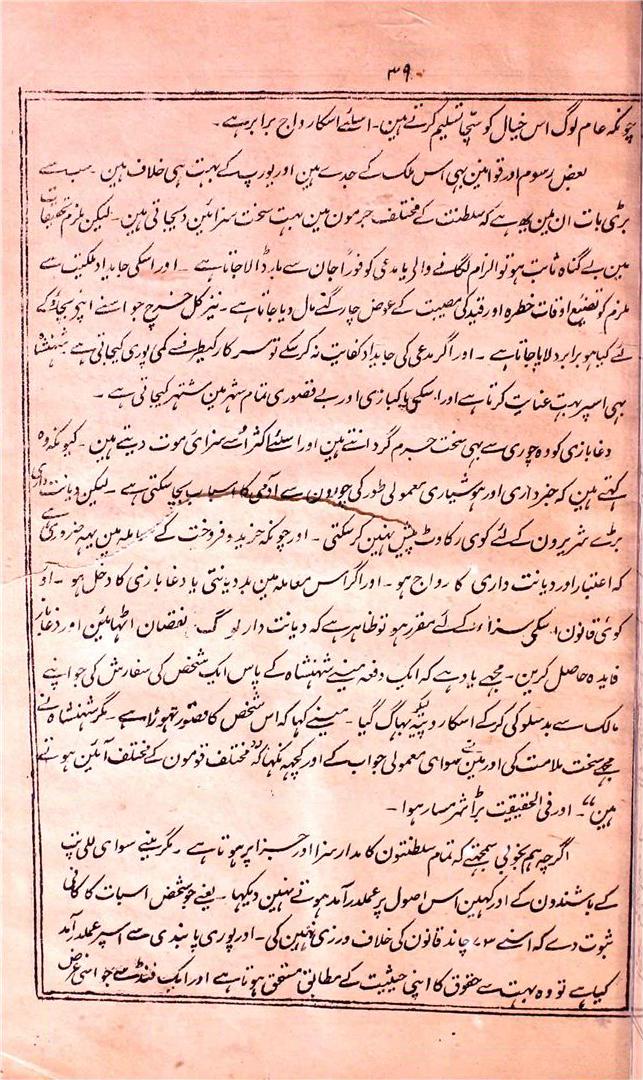 ۳۹
چونکہ عام لوگ اس خیال کو سچا تسلیم کرتے ہین۔ اسلئے اسکا رواج برابر ہے۔
بعض رسوم اور قوانین بہی اس ملک کے جدے ہین اور یورپ کے بہت ہی خلاف ہین۔ سب سے
بڑی بات ان مین یہ ہے کہ سلطنت کے مختلف جرمون مین بہت سخت سزائین دیجاتی ہین۔ لیکن ملزم تحقیقات
مین بے گناہ ثابت ہو تو الزام لگانے والی یا مدعی کو فوراً جان سے مار ڈالا جاتا ہے۔ اور اسکی جایداد ملکیت سے
ملزم کو تضیع اوقات خطرہ اور قید کی مصیبت کے عوض چار گنے مال دیا جاتا ہے۔ نیز کل خرچ جو اسنے اپنی بچاؤ کے
لئے کیا ہو برابر دلایا جاتا ہے۔ اور اگر مدعی کی جایداد کفایت نہ کر سکے تو سرکار کیطرف سے کمی پوری کیجاتی ہے شہنشاہ
بہی اسپر بہت عنایت کرتا ہے اور اسکی پاکبازی اور بے قصوری تمام شہر مین مشتہر کیجاتی ہے۔
دغابازی کو وہ چوری سے بہی سخت جرم گردانتے ہین اور اسلئے اکثر اُسے سزای موت دیتے ہین۔ کیونکہ وہ
کہتے ہین کہ خبرداری اور ہوشیاری معمولی طور کی چورون سے آدمی کا اسباب بچا سکتی ہے۔ لیکن دیانت داری
بڑے شریرون کے لئے کوی رکاوٹ پیش نہین کر سکتی۔ اور چونکہ خرید و فروخت کے معاملہ مین یہہ ضروری ہے
کہ اعتبار اور دیانت داری کا رواج ہو۔ اور اگر اس معاملہ مین بددیانتی یا دغابازی کا دخل ہو۔ اور
کوئی قانون اسکی سزا کے لئے مقرر ہو تو ظاہر ہے کہ دیانت دار لوگ نقصان اٹہائین اور دغاباز
فایدہ حاصل کرین۔ مجہے یاد ہے کہ ایک دفعہ مینے شہنشاہ کے پاس ایک شخص کی سفارش کی جو اپنے
مالک سے بدسلوکی کر کے اسکا روپیہ لیکر بہاگ گیا۔ مینے کہا کہ اس شخص کا قصور تہوڑا ہے۔ مگر شہنشاہ نے
مجہے سخت ملامت کی اور مین نے سوای معمولی جواب کے اور کچہہ نکہا کہ "مختلف قومون کے مختلف آئین ہوتے
ہین"۔ اور فی الحقیقت بڑا شرمسار ہوا۔
اگرچہ ہم بخوبی سمجہتے کہ تمام سلطنتون کا مدار سزا اور جزا پر ہوتا ہے۔ مگر مینے سوای للی پٹ
کے باشندون کے اور کہین اس اصول پر عملدرآمد ہوتے نہین دیکہا۔ یعنے جو شخص اس بات کا کافی
ثبوت دے کہ اسنے ۷۳ چاند قانون کی خلاف ورزی نہین کی۔ اور پوری پابندی سے اسپر عملدرآمد
کیا ہے تو وہ بہت سے حقوق کا اپنی حیثیت کے مطابق مستحق ہوتا ہے اور ایک فنڈ سے جو اسی غرض